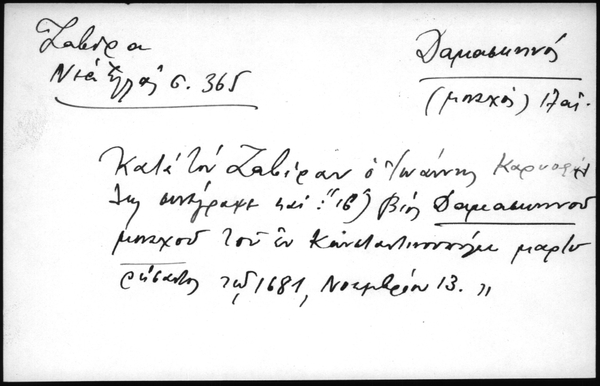 Ζαβίρα
Νέα Ἑλλάς σ. 365
Δαμασκηνός
(μοναχός) 17 αἰ.
Κατά τόν Ζαβίραν ὁ Ἰωάννης Καρυοφύλ
λης συνέγραψε καί : "ιβ) βίος Δαμασκηνοῦ
μοναχοῦ τοῦ ἐν Κωνσταντινουπόλει μαρτυ
ρήσαντος τῷ 1681, Νοεμβρίου 13."